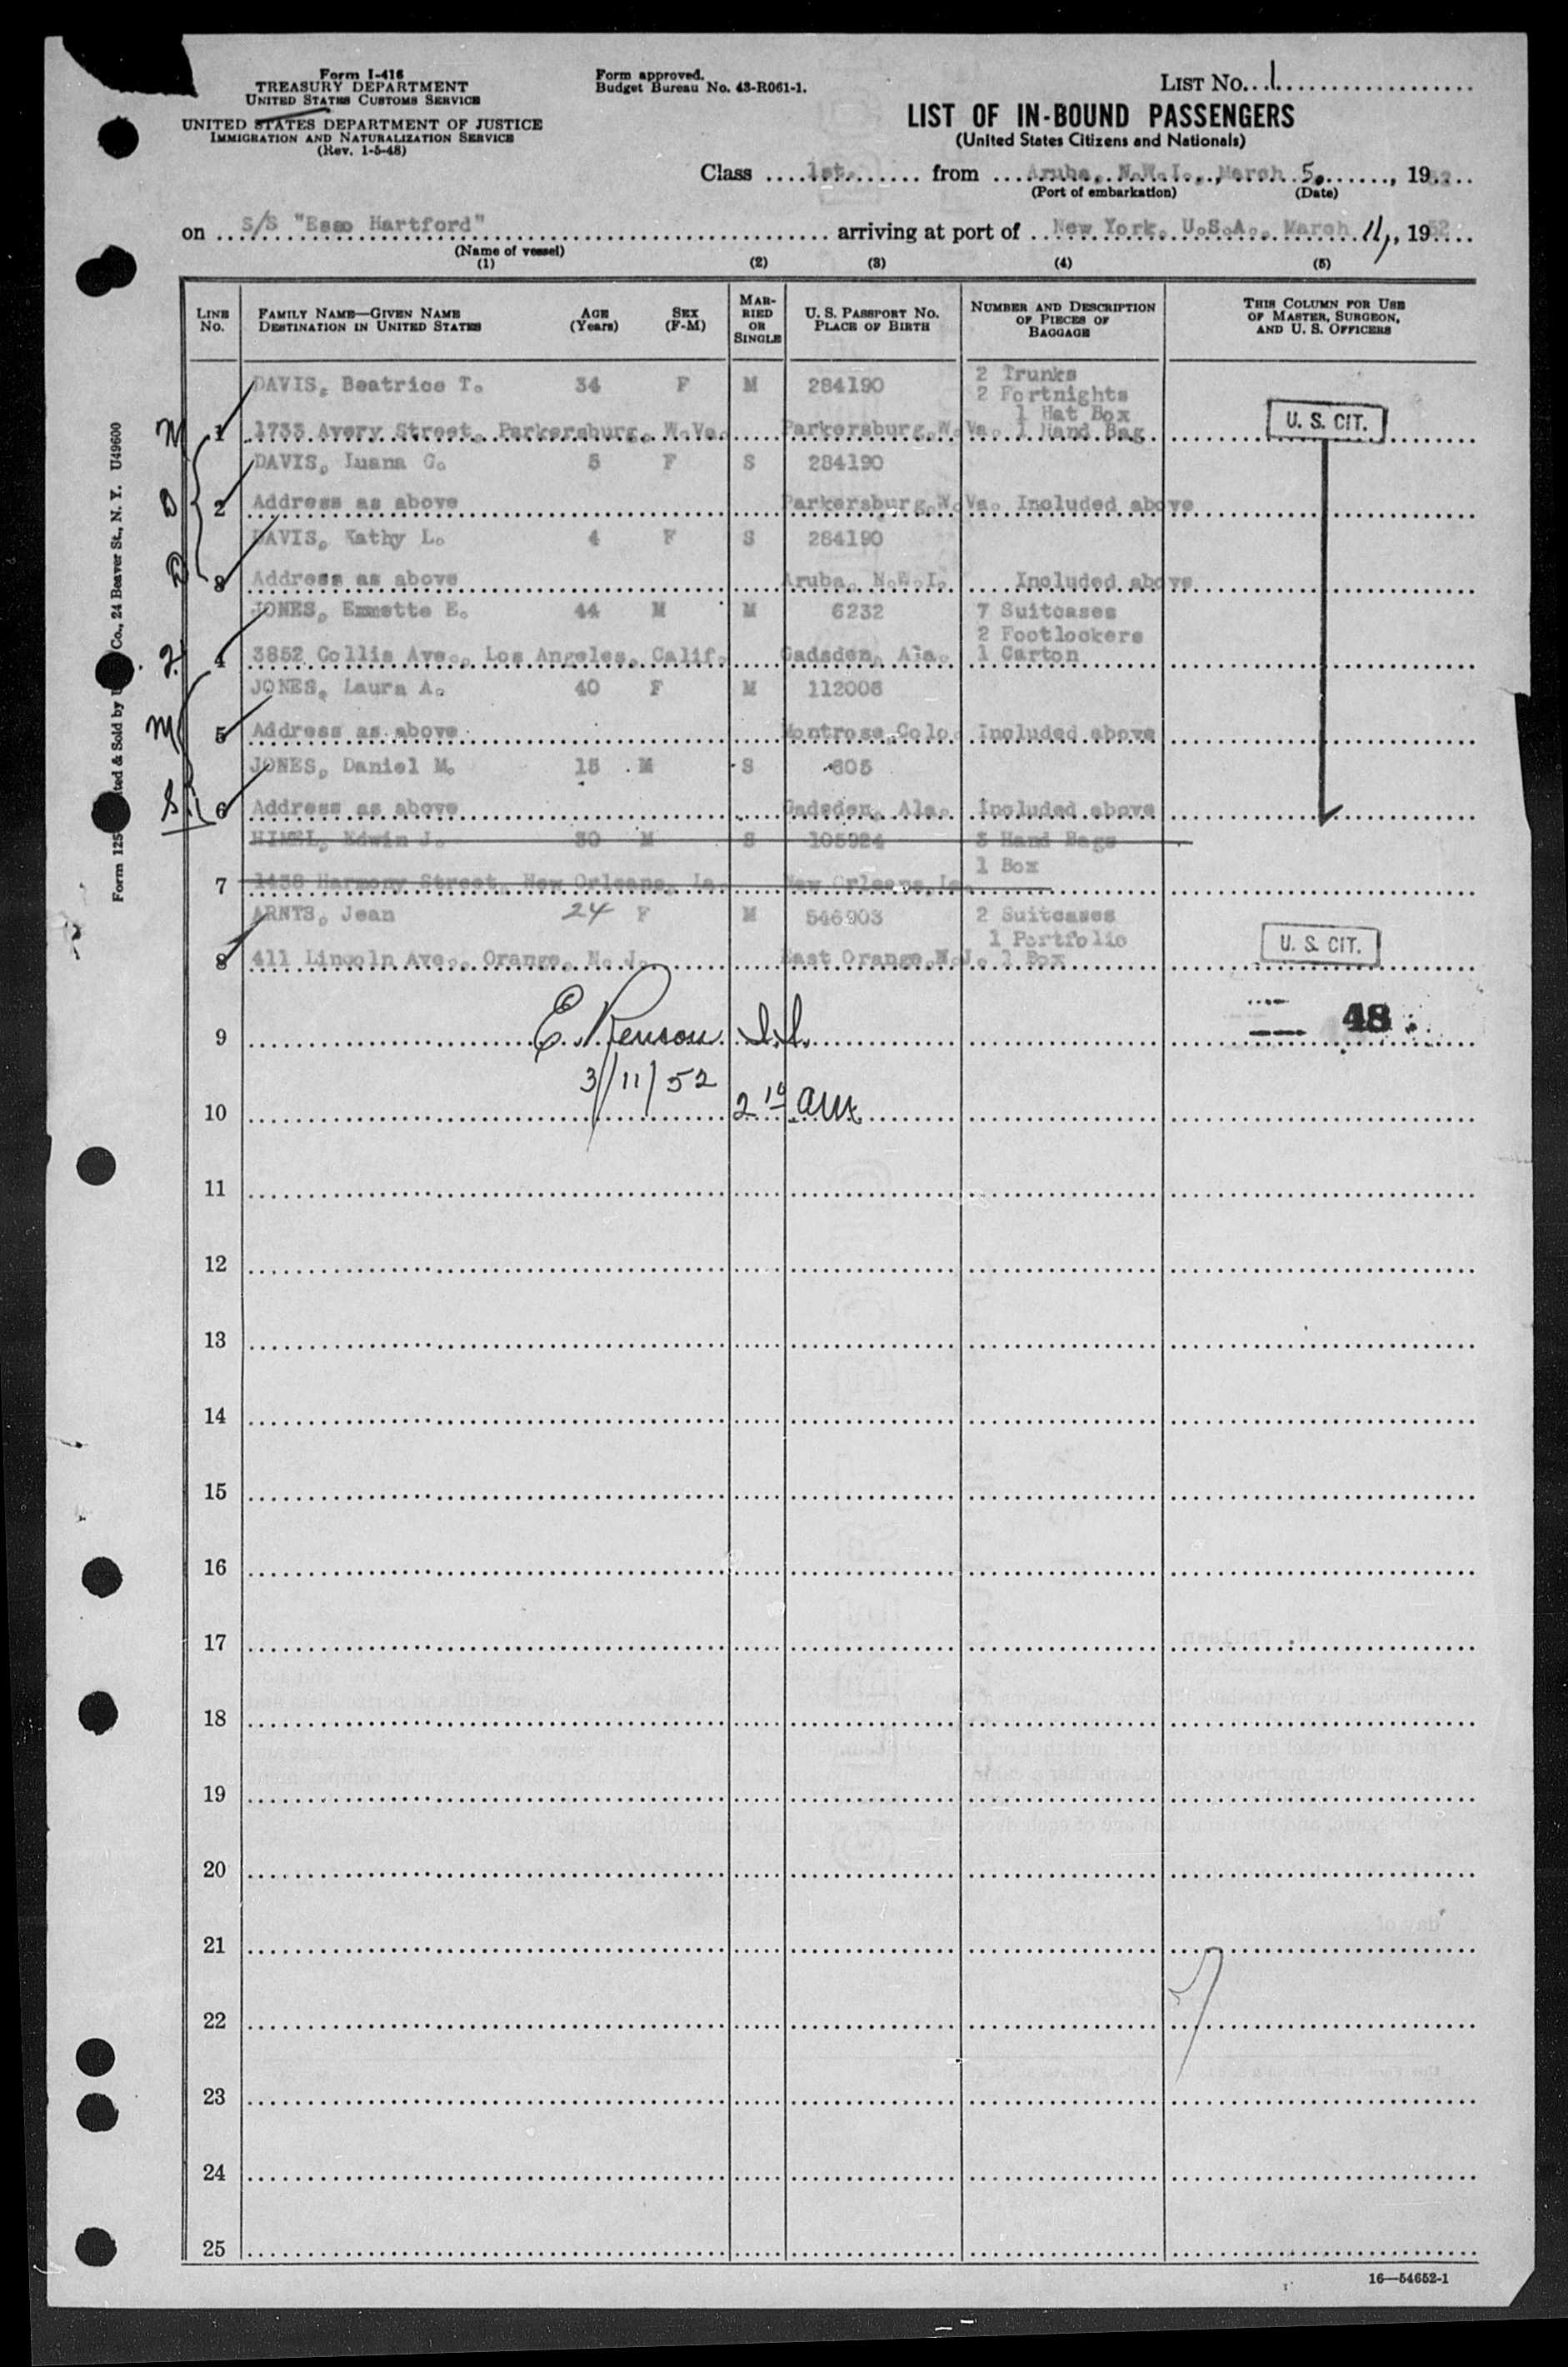 Form I-416
TREASURY DEPARTMENT
UNITED STATES CUSTOMS SERVICE
UNITED STATES DEPARTMENT OF JUSTICE
IMMIGRATION AND NATURALIZATION SERVICE
(Rev. 1-5-48)
Form approved.
Budget Bureau No. 43-R061-1.
LIST No. 1
LIST OF IN-BOUND PASSENGERS
(United States Citizens and Nationals)
Class 1st. from Aruba, N.W.I., March 5, 1952
(Port of embarkation) (Date)
on S/S "Esso Hartford" arriving at port of New York, U.S.A., March 11, 1952
(Name of vessel)
(1) (2) (3) (4) (5)
LINE No.
FAMILY NAME—GIVEN NAME
DESTINATION IN UNITED STATES
AGE (Years)
SEX (F-M)
MARRIED OR SINGLE
U. S. PASSPORT NO.
PLACE OF BIRTH
NUMBER AND DESCRIPTION OF PIECES OF BAGGAGE
THIS COLUMN FOR USE OF MASTER, SURGEON, AND U. S. OFFICERS
DAVIS, Beatrice T. 34 F M 284190 2 Trunks
2 Fortnights
1 Hat Box
1 1733 Avery Street, Parkersburg, W.Va. Parkersburg, W.Va. 1 Hand Bag
U. S. CIT.
DAVIS, Luana G. 5 F S 284190
2 Address as above Parkersburg, W.Va. Included above
DAVIS, Kathy L. 4 F S 284190
3 Address as above Aruba, N.W.I. Included above
JONES, Emmette E. 44 M M 6232 7 Suitcases
2 Footlockers
4 3852 Collis Ave., Los Angeles, Calif. Gadsden, Ala. 1 Carton
JONES, Laura A. 40 F M 112006
5 Address as above Montrose, Colo. Included above
JONES, Daniel M. 15 M S 605
6 Address as above Gadsden, Ala. Included above
HIMEL, Edwin J. 30 M S 105924 3 Hand Bags
1 Box
7 1438 Harmony Street, New Orleans, La. New Orleans, La.
ARNTS, Jean 24 F M 546903 2 Suitcases
1 Portfolio
8 411 Lincoln Ave., Orange, N. J. East Orange, N.J. 1 Box
U. S. CIT.
48
9 E. Renson I.I.
3/11/52
10 2 10 AM
11
12
13
14
15
16
17
18
19
20
21
22
23
24
25
16—54652-1
Co., 24 Beaver St., N. Y. U49600